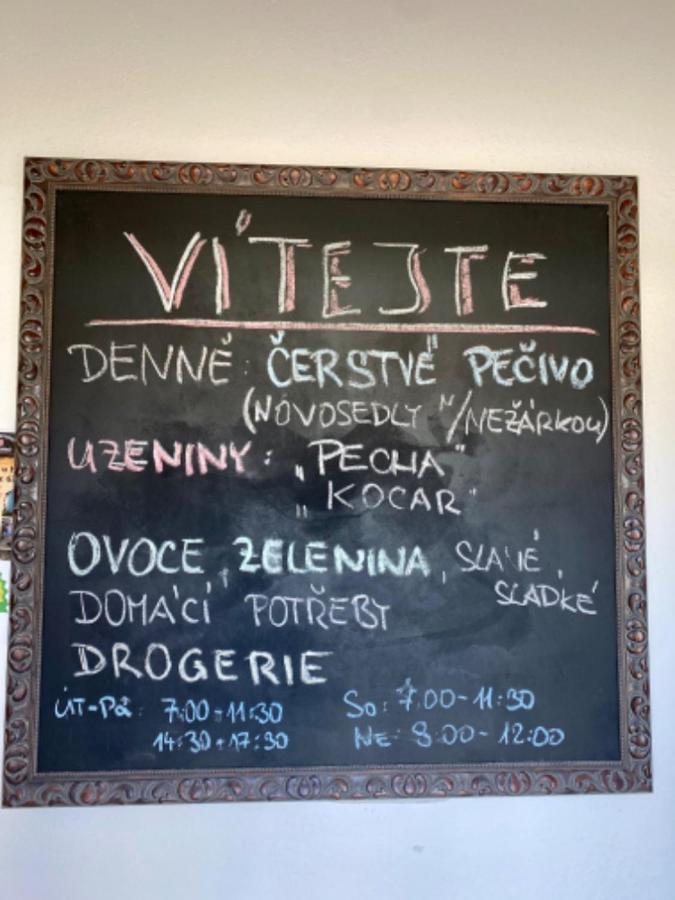 VÍTEJTE
DENNĚ: ČERSTVÉ PEČIVO
(NOVOSEDLY N/NEŽÁRKOU)
UZENINY: „PECHA"
„KOCAR"
OVOCE, ZELENINA, SLANÉ,
SLADKÉ
DOMÁCÍ POTŘEBY
DROGERIE
ÚT-PÁ: 7:00-11:30
14:30-17:30
SO: 7:00-11:30
NE: 8:00-12:00